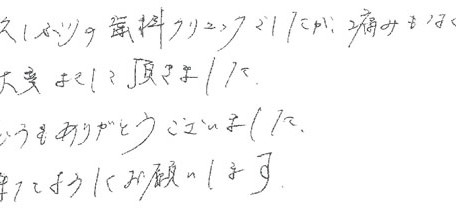 久しぶりの歯科クリニックでしたが、痛みもなく
大変よくして頂きました。
どうもありがとうございました。
よろしくお願いします。